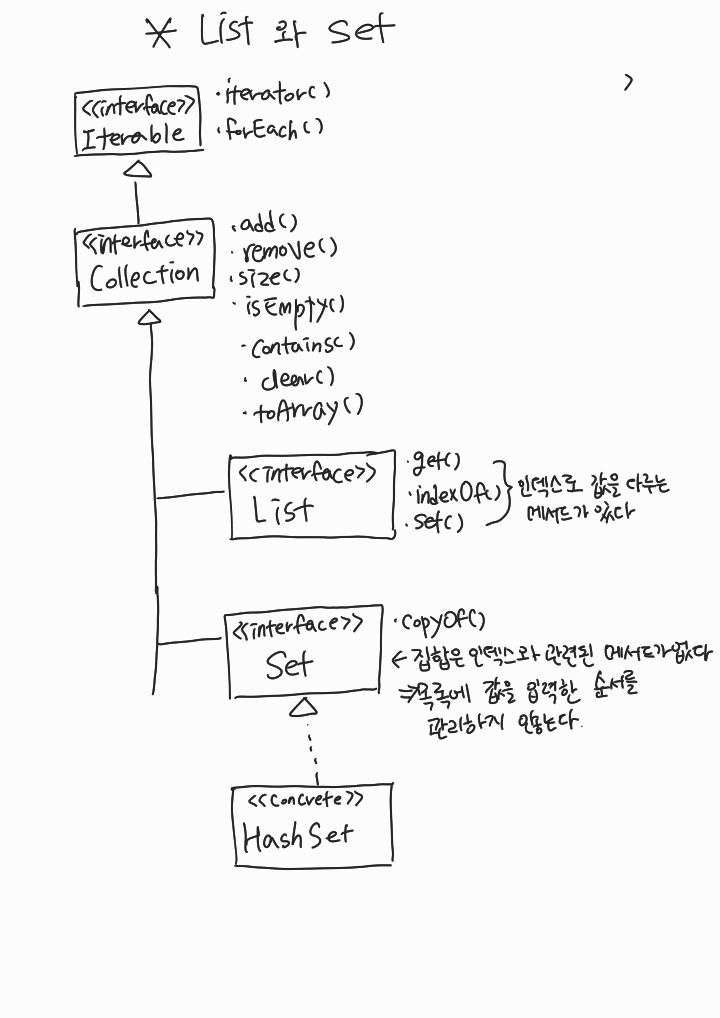 * List 와 Set
<<interface>>
Iterable
·iterator()
·forEach()
<<interface>>
Collection
·add()
·remove()
·size()
·isEmpty()
·contains()
·clear()
·toArray()
<<interface>>
List
·get()
·indexOf()
·set()
인덱스로 값을 다루는
메서드가 있다
<<interface>>
Set
·copyOf()
← 집합은 인덱스와 관련된 메서드가 없다
⇒목록에 값을 입력한 순서를
관리하지 않는다.
<<concrete>>
HashSet